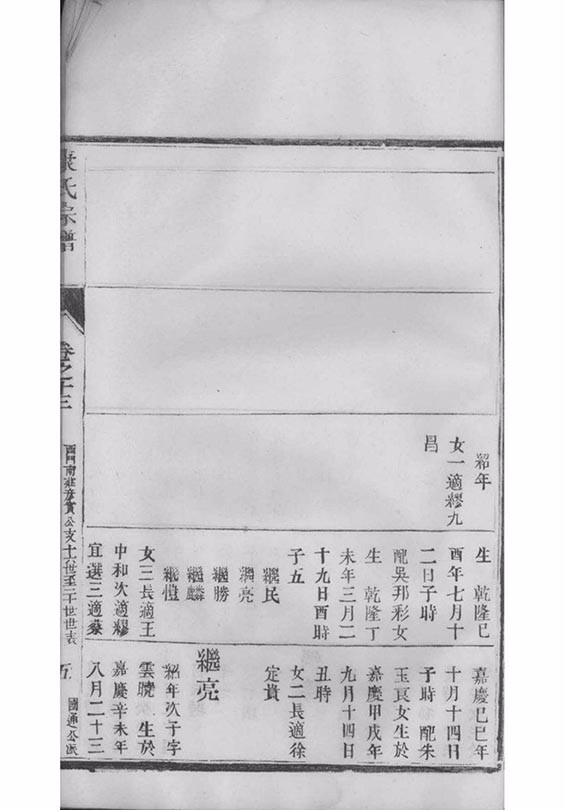 紹年
女一適繆九
昌
生 乾隆己
酉年七月十
二日子時
配吳邦彩女
生 乾隆丁
未年三月二
十九日酉時
子五
繼民
繼亮
繼勝
繼麟
繼愷
女三長適王
中和次適繆
宜選三適蔡
嘉慶己巳年
十月十四日
子時 配朱
玉良女生於
嘉慶甲戌年
九月十四日
丑時
女二長適徐
定貴
繼亮
紹年次子字
雲曉 生於
嘉慶辛未年
八月二十三
氏宗譜
卷之十三
西門南莊彥賓公支十六世至二十世世表
五
國通公派